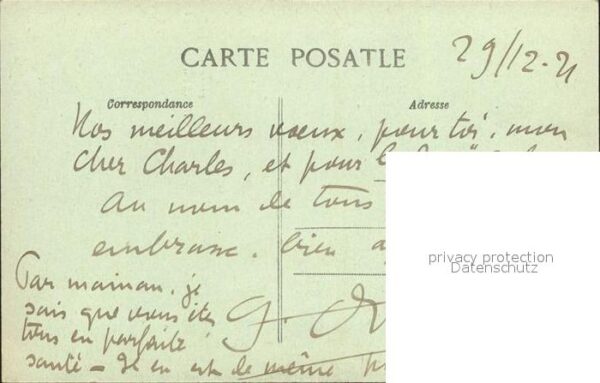 CARTE POSATLE
29/12-21
Correspondance
Adresse
Nos meilleurs voeux, pour toi, mon
cher Charles, et pour
Au nom de tous
embrasse. bien
Par maman, je
sais que vous êtes
tous en parfaite
santé - Il en est de même
G.
privacy protection
Datenschutz